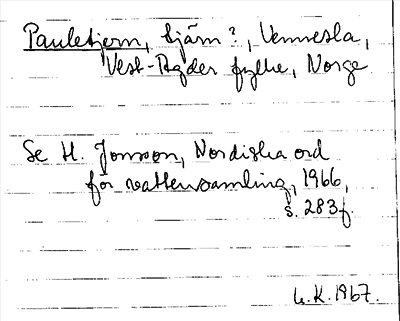 Pauletjern, tjärn?, Vennesla,
Vest-Agder fylke, Norge
Se H. Jonsson, Nordiska ord
för vattensamling, 1966,
s. 283f.
L.K. 1967.